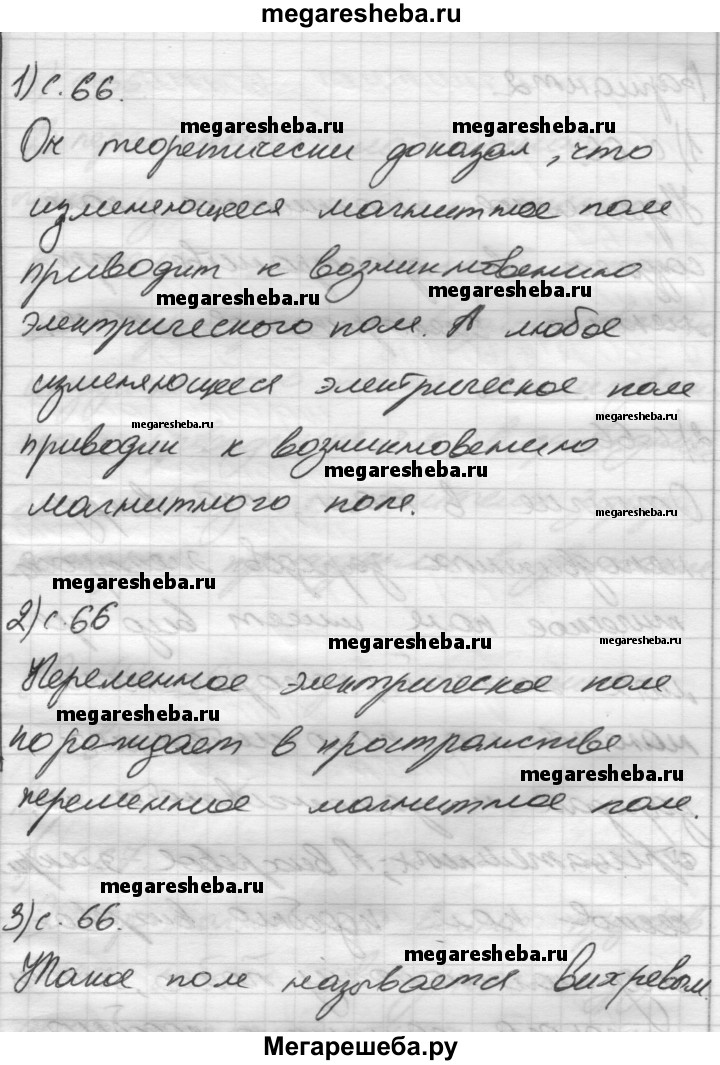 megaresheba.ru
1) с. 66.
megaresheba.ru megaresheba.ru
Он теоретически доказал, что
изменяющееся магнитное поле
приводит к возникновению
megaresheba.ru megaresheba.ru
электрического поле. А любое
изменяющееся электрическое поле
megaresheba.ru megaresheba.ru
приводик к возникновению
megaresheba.ru
магнитного поле.
megaresheba.ru
megaresheba.ru
2) с. 66
megaresheba.ru megaresheba.ru
Переменное электрическое поле
megaresheba.ru
порождает в пространстве
megaresheba.ru
переменное магнитное поле.
megaresheba.ru
3) с. 66.
megaresheba.ru
Такое поле называется вихревым.
Мегарешеба.ру